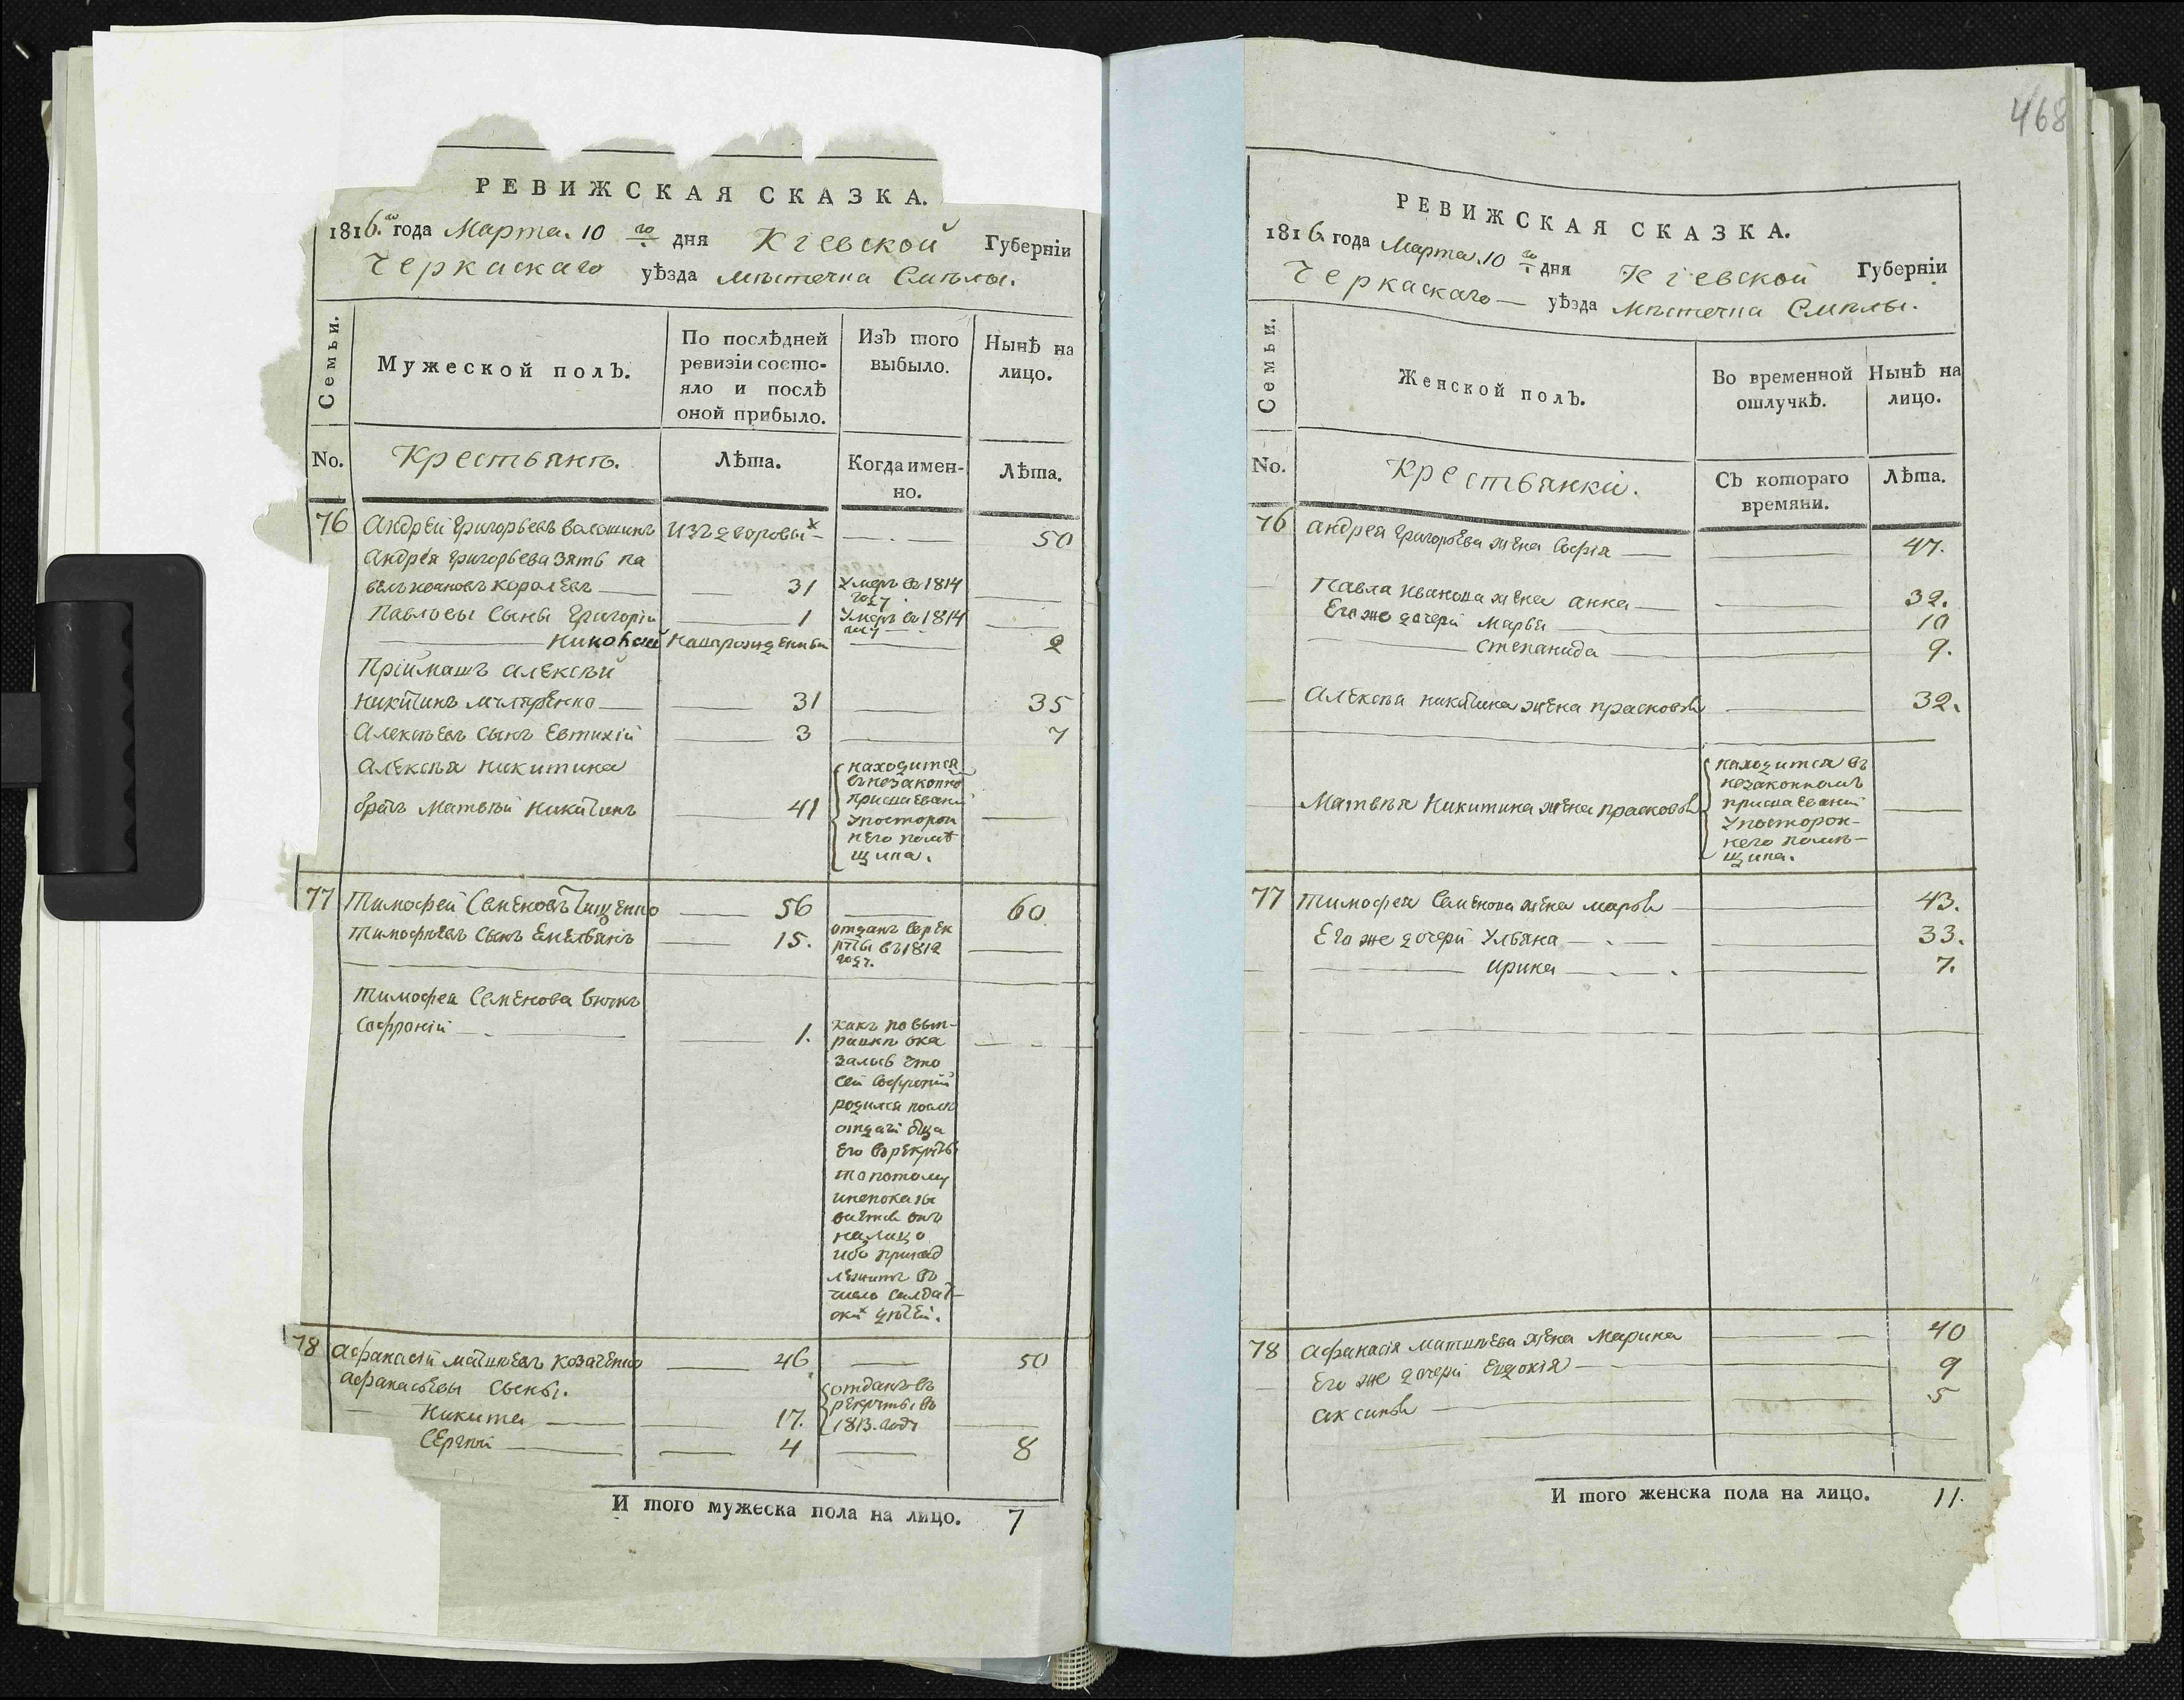 468
РЕВИЖСКАЯ СКАЗКА.
1816.го года Марта. 10 го дня Кіевской Губерніи
Черкаскаго уѣзда мѣстечка Смѣлы.
Семьи.
Мужеской полъ.
По послѣдней
ревизіи состо-
яло и послѣ
оной прибыло.
Изъ того
выбыло.
Нынѣ на
лицо.
No.
Крестьянъ.
Лѣта.
Когда имен-
но.
Лѣта.
76 Андрей Григорьевъ Волошинъ Изъ дворовых 50
Андрея Григорьева зять Па
велъ Ивановъ Королевъ 31 Умеръ въ 1814
году
Павловы сыны Григорій 1 Умеръ въ 1814
году
Николай Новорожденный 2
Пріймашъ Алексѣй
Никитинъ 31 35
Алексѣевъ сынъ Евтихій 3 7
Алексѣя Никитина
братъ Матвѣй Никитинъ 41
находится
въ незаконно
присваеваній
у посторон
него помѣ
щика.
77 Тимофей Семеновъ Тищенко 56 60
Тимофѣевъ сынъ Емельянъ 15. отданъ въ рек
руты въ 1812
году.
Тимофея Семенова внукъ
Софроній 1.
какъ по вып-
равкѣ ока
залось что
сей Софроній
родился послѣ
отдачи отца
его въ рекруты
то потому
и непоказы
вается онъ
на лицо
ибо принад
лежитъ въ
число солдат-
скихъ дѣтей.
78 Афанасій Матвѣевъ Козаченко 46 50
Афанасьевы сыны.
Никита 17. отданъ въ
рекруты въ
1813. году
Сергѣй 4 8
И того мужеска пола на лицо. 7
РЕВИЖСКАЯ СКАЗКА.
1816. года Марта. 10 го дня Кіевской Губерніи
Черкаскаго уѣзда Мѣстечка Смѣлы.
Семьи.
Женской полъ.
Во временной
отлучкѣ.
Нынѣ на
лицо.
No.
Крестьянки.
Съ котораго
времяни.
Лѣта.
76 Андрея Григорьева жена Софія 47.
Павла Иванова жена Анна 32.
Его же дочери Марья 10
Степанида 9.
Алексѣя Никитина жена Прасковья 32.
Матвѣя Никитина жена Прасковья
находится въ
незаконномъ
присваеваній
у посторон-
него помѣ-
щика.
77 Тимофея Семенова жена Марья 43.
Его же дочери Ульяна 33.
Ирина 7.
78 Афанасія Матвѣева жена Марина 40
Его же дочери Евдокія 9
Аксинья 5
И того женска пола на лицо. 11.